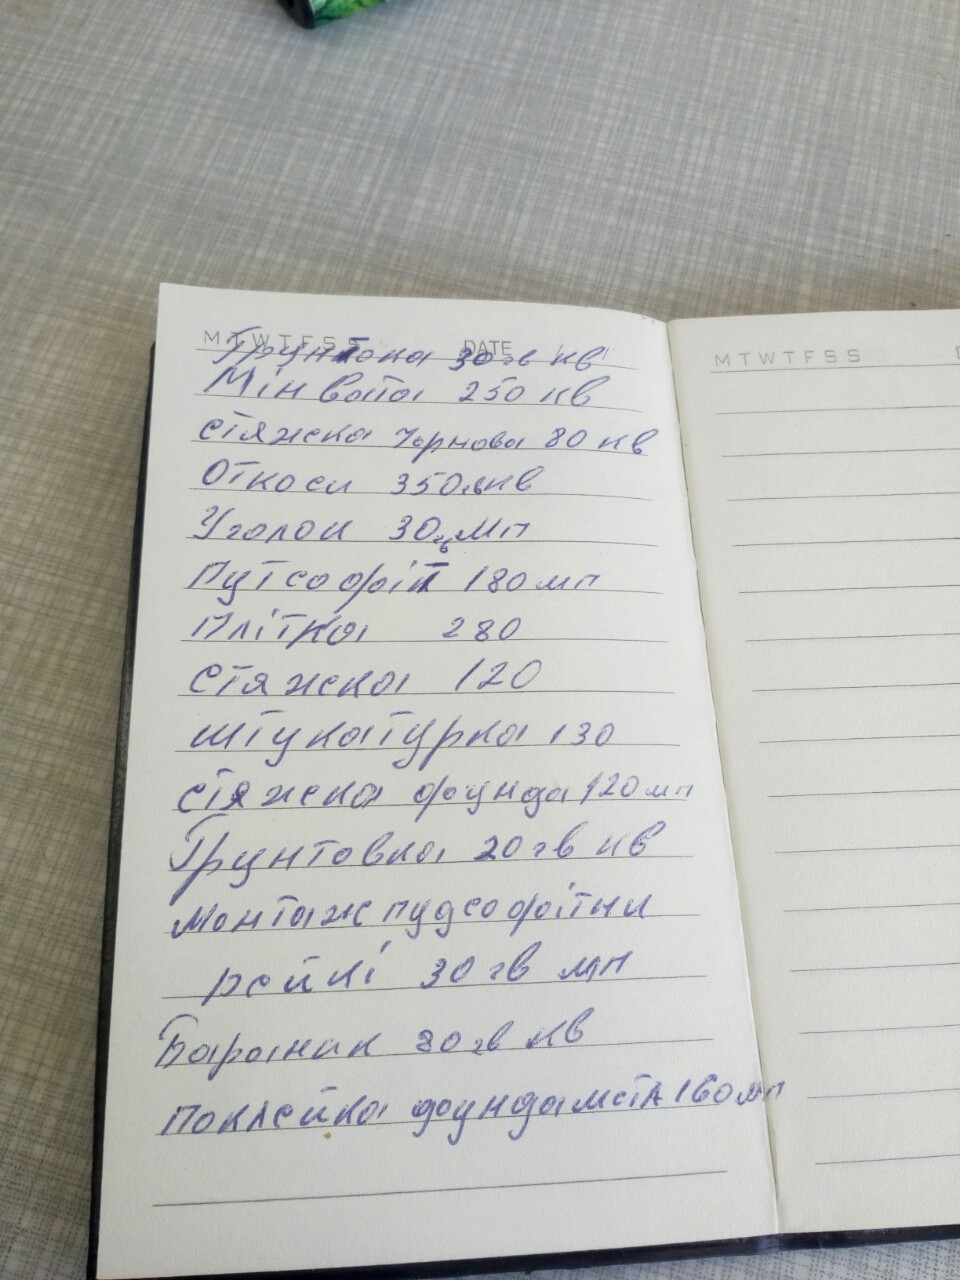 M T W T F S S DATE
Грунтока 30 гв кв
Мін вата 250 кв
стяжка чорнова 80 кв
Откоси 350 кв
Уголок 30 гв мп
Путсофіт 180 мп
Плітка 280
Стяжка 120
штукатурка 130
стяжка фунда 120 мп
Грунтовка 20 гв кв
монтаж пудсофітни
рейкі 30 гв мп
Бараник 80 гв кв
Поклейка фундамета 160 мп
M T W T F S S